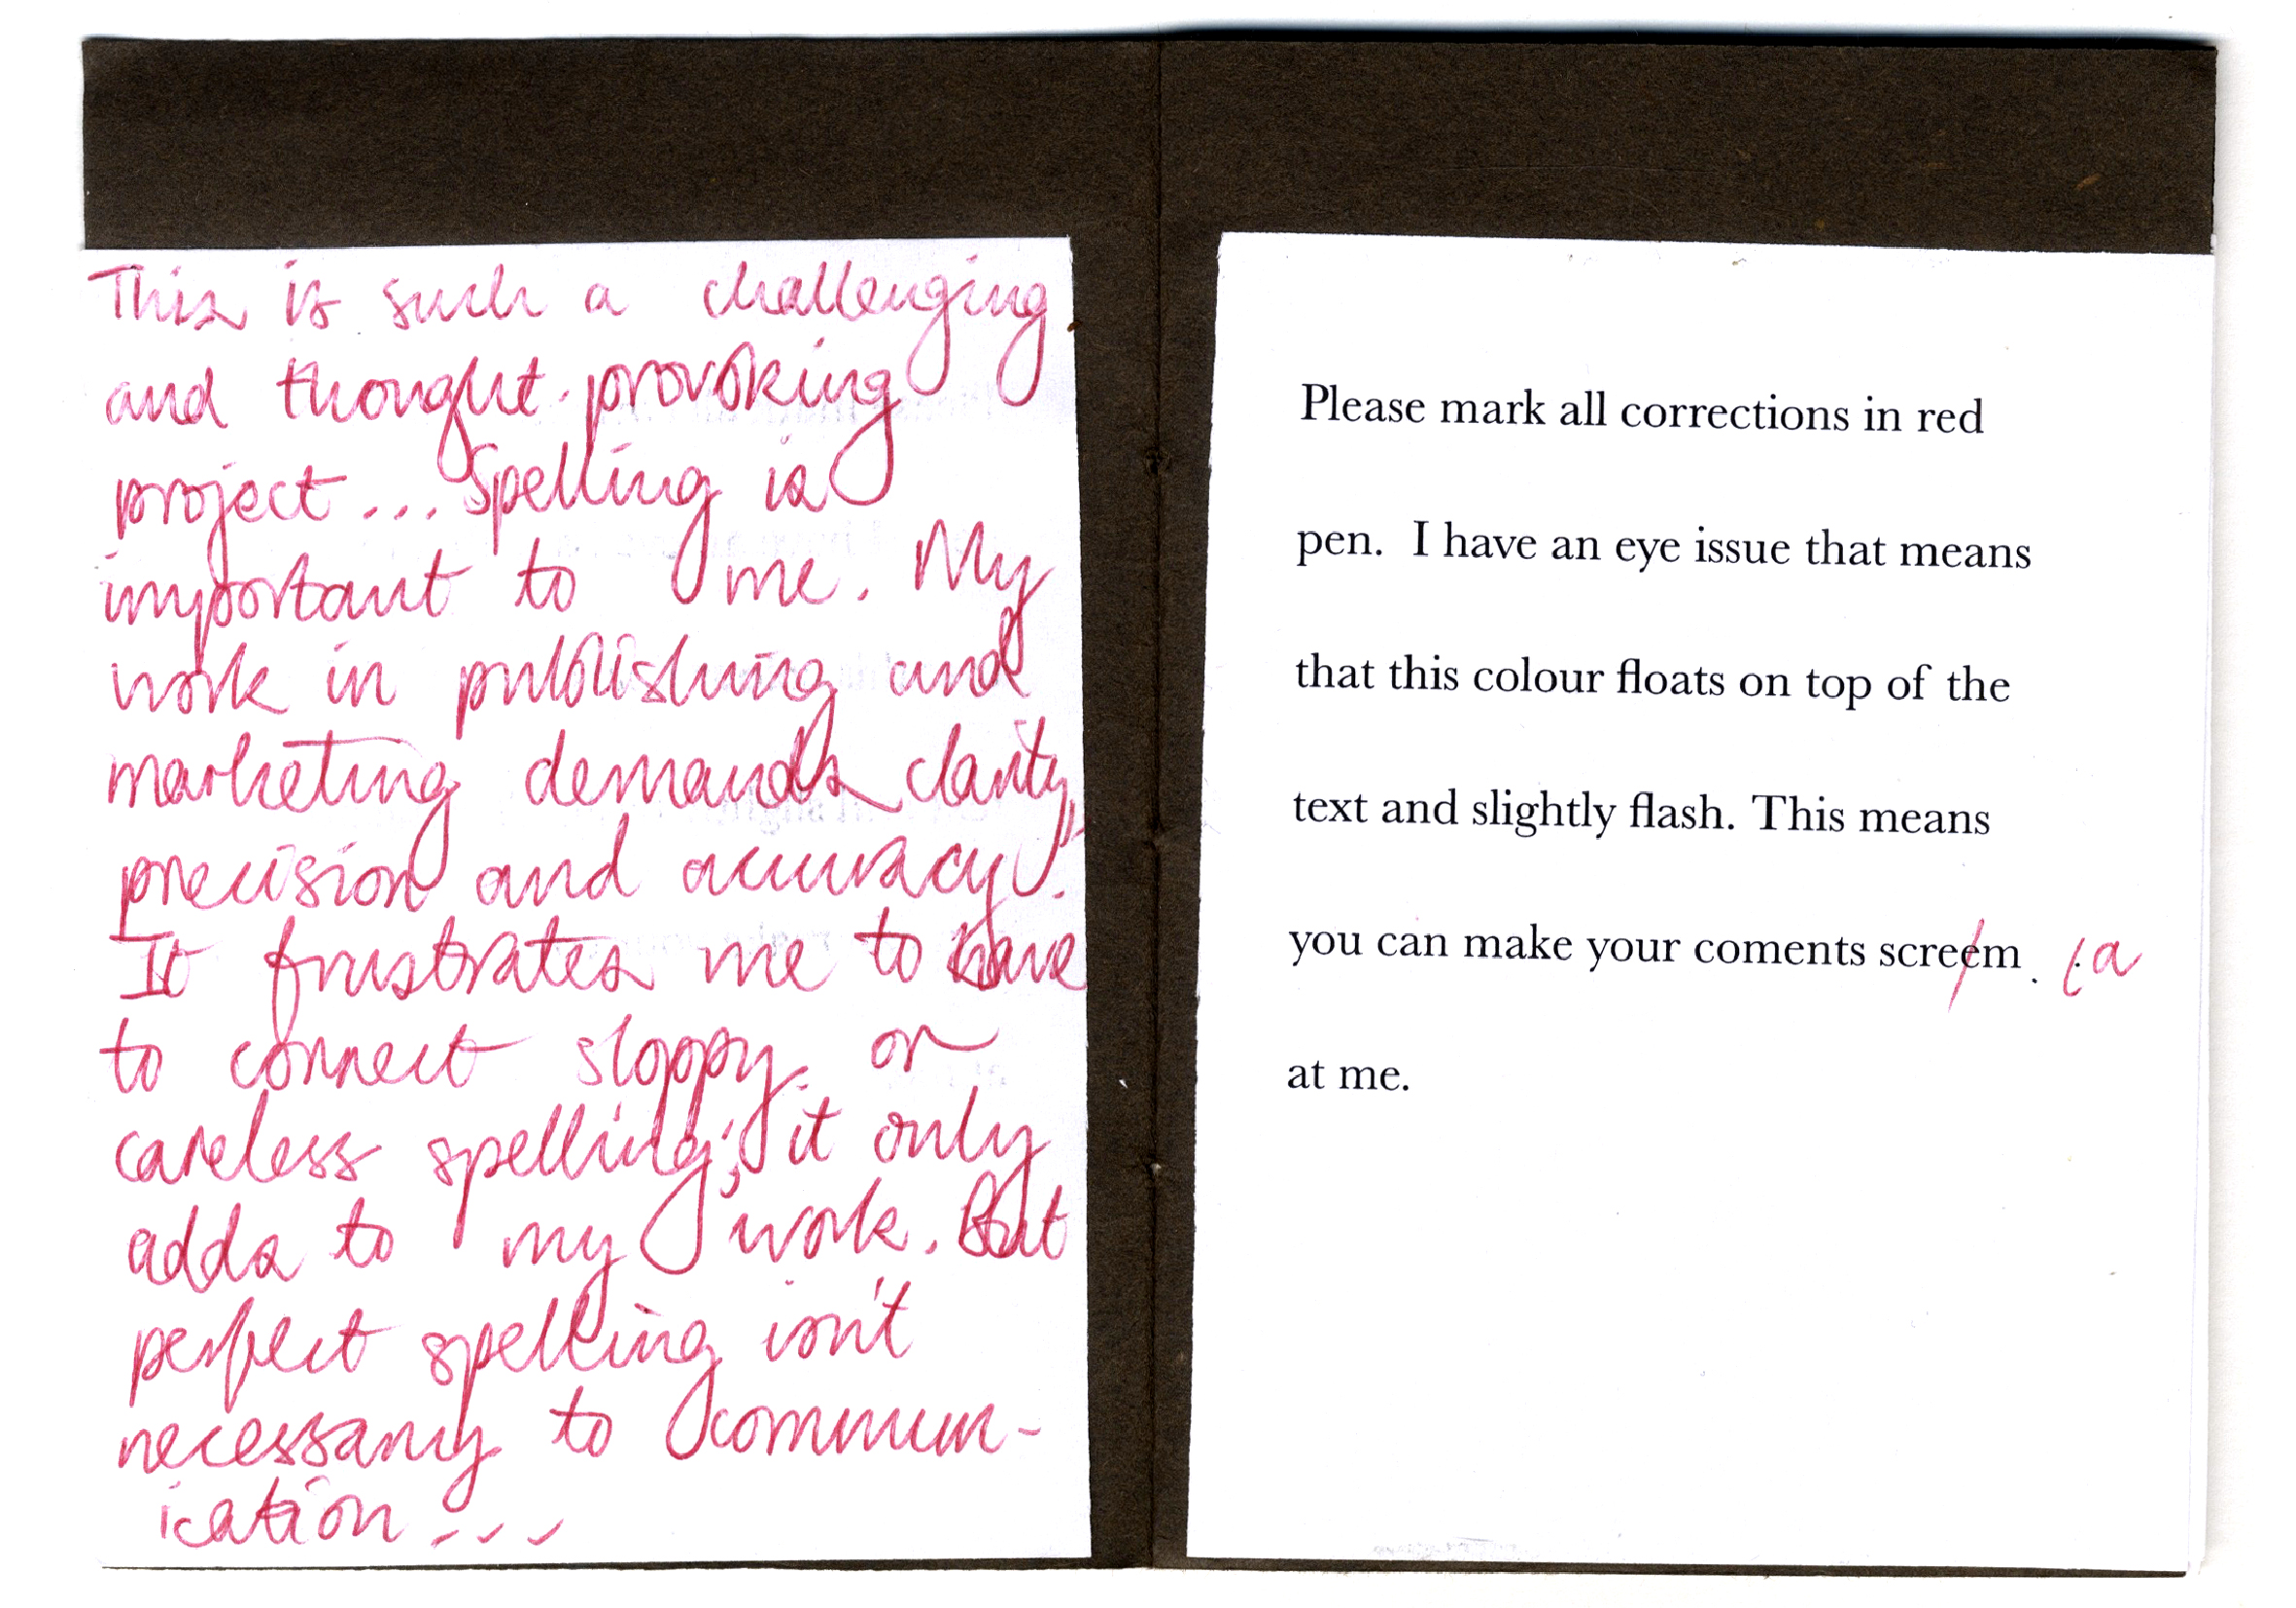 This is such a challenging
and thought-provoking
project... Spelling is
important to me. My
work in publishing and
marketing demands clarity,
precision and accuracy.
It frustrates me to have
to correct sloppy or
careless spelling; it only
adds to my work. But
perfect spelling isn't
necessary to commun-
ication...
Please mark all corrections in red
pen. I have an eye issue that means
that this colour floats on top of the
text and slightly flash. This means
you can make your coments screem . /a
at me.